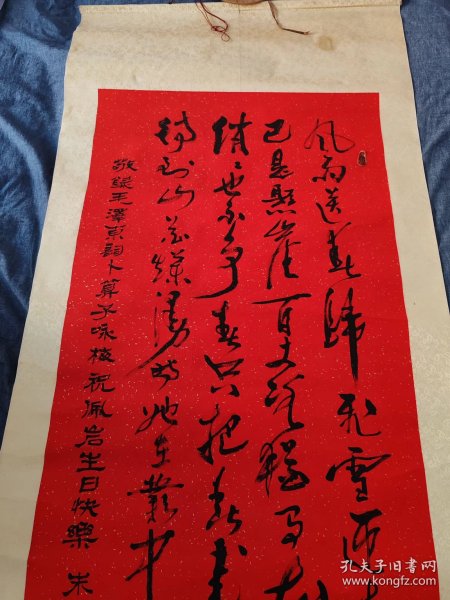 风雨送春归飞雪迎
已是悬崖百丈冰犹有
俏也不争春只把春来
待到山花烂漫时她在丛中
敬录毛泽东词卜算子咏梅祝佩岩生日快乐 朱
孔夫子旧书网
kongfz.com